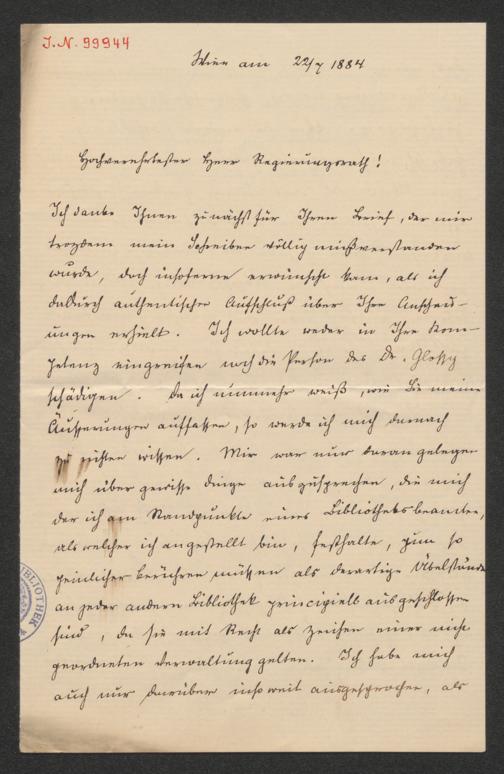 J.N. 99944
Wien am 22/7 1884
Hochverehrtester Herr Regierungsrath!
Ich danke Ihnen zunächst für Ihren Brief, der mir
trotzdem mein Schreiben völlig mißverstanden
wurde, doch insoferne erwünscht kam, als ich
dadurch authentischen Aufschluß über Ihre Anschau-
ungen erhielt. Ich wollte weder in Ihre Kom-
petenz eingreifen noch die Person des Dr. Glossy
schädigen. Da ich nunmehr weiß, wie Sie meine
Äusserungen auffassen, so werde ich mich darnach
zu richten wissen. Mir war nur daran gelegen
mich über gewisse Dinge auszusprechen, die mich
der ich am Standpunkte eines Bibliotheksbeamten,
als welcher ich angestellt bin, festhalte, um so
peinlicher berühren müssen als derartige Übelstände
an jeder andern Bibliothek principiell ausgeschlossen
sind, da sie mit Recht als Zeichen einer nicht
geordneten Verwaltung gelten. Ich habe mich
auch nur darüber insoweit ausgesprochen, als
BIBLIOTHEK